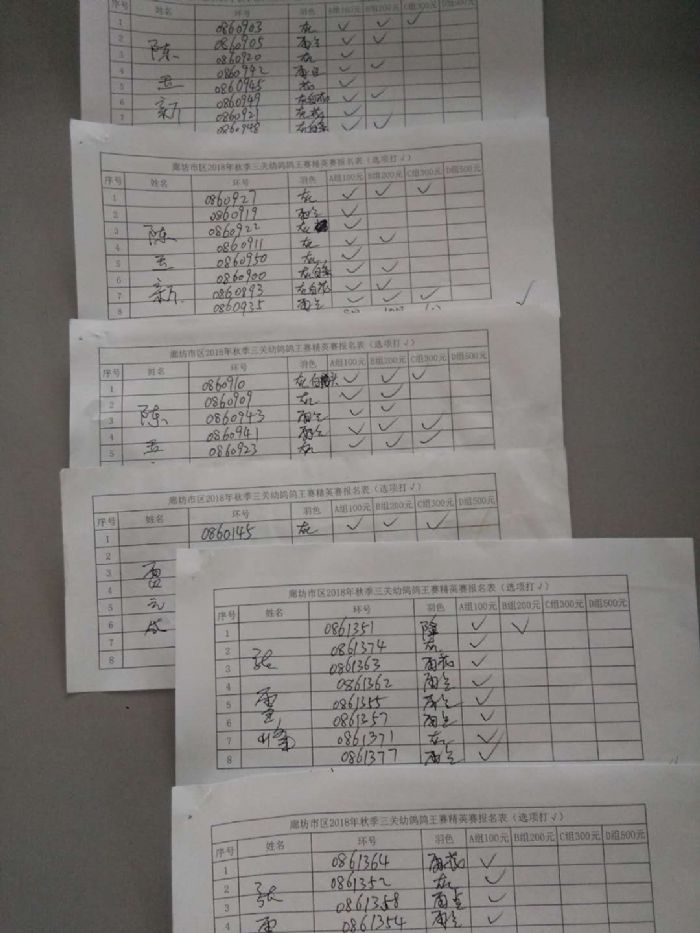 序号 姓名 A组100元 B组200元 C组300元 D组500元
1 0860903 灰 ✓ ✓ ✓
2 0860905 雨点 ✓ ✓
3 陈 0860920 灰 ✓
4 0860942 雨点 ✓ ✓
5 玉 0860945 ✓
6 0860949 ✓ ✓
7 新 086092 ✓
0860948 ✓ ✓
廊坊市区2018年秋季三关幼鸽鸽王赛精英赛报名表（选项打√）
序号 姓名 环号 羽色 A组100元 B组200元 C组300元 D组500元
1 0860927 灰 ✓ ✓ ✓
2 0860919 雨点 ✓
3 陈 0860922 灰 ✓
4 0860911 灰 ✓ ✓
5 玉 0860950 灰 ✓
6 0860900 灰白条 ✓ ✓
7 新 0860893 灰白花 ✓ ✓
8 0860935 雨点 ✓ ✓ ✓
廊坊市区2018年秋季三关幼鸽鸽王赛精英赛报名表（选项打√）
序号 姓名 环号 羽色 A组100元 B组200元 C组300元 D组500元
1 0860910 灰白头 ✓ ✓ ✓
2 0860909 灰 ✓ ✓
3 陈 0860943 雨点 ✓ ✓
4 0860941 雨点 ✓ ✓ ✓
5 玉 0860923 灰 ✓ ✓ ✓
廊坊市区2018年秋季三关幼鸽鸽王赛精英赛报名表（选项打√）
序号 姓名 环号 羽色 A组100元 B组200元 C组300元 D组500元
1 0860145 灰 ✓ ✓ ✓
2
3
4
5 元
6 成
7
8
廊坊市区2018年秋季三关幼鸽鸽王赛精英赛报名表（选项打√）
序号 姓名 环号 羽色 A组100元 B组200元 C组300元 D组500元
1 0861351 ✓ ✓
2 张 0861374 灰 ✓
3 0861363 雨花 ✓
4 0861362 雨点 ✓
5 0861355 雨点 ✓
6 0861357 雨点 ✓
7 0861371 灰 ✓
8 0861377 雨点 ✓
廊坊市区2018年秋季三关幼鸽鸽王赛精英赛报名表（选项打√）
序号 姓名 环号 羽色 A组100元 B组200元 C组300元 D组500元
1 0861364 雨花 ✓
2 张 0861352 灰 ✓
3 0861358 雨点 ✓
4 0861354 雨点 ✓